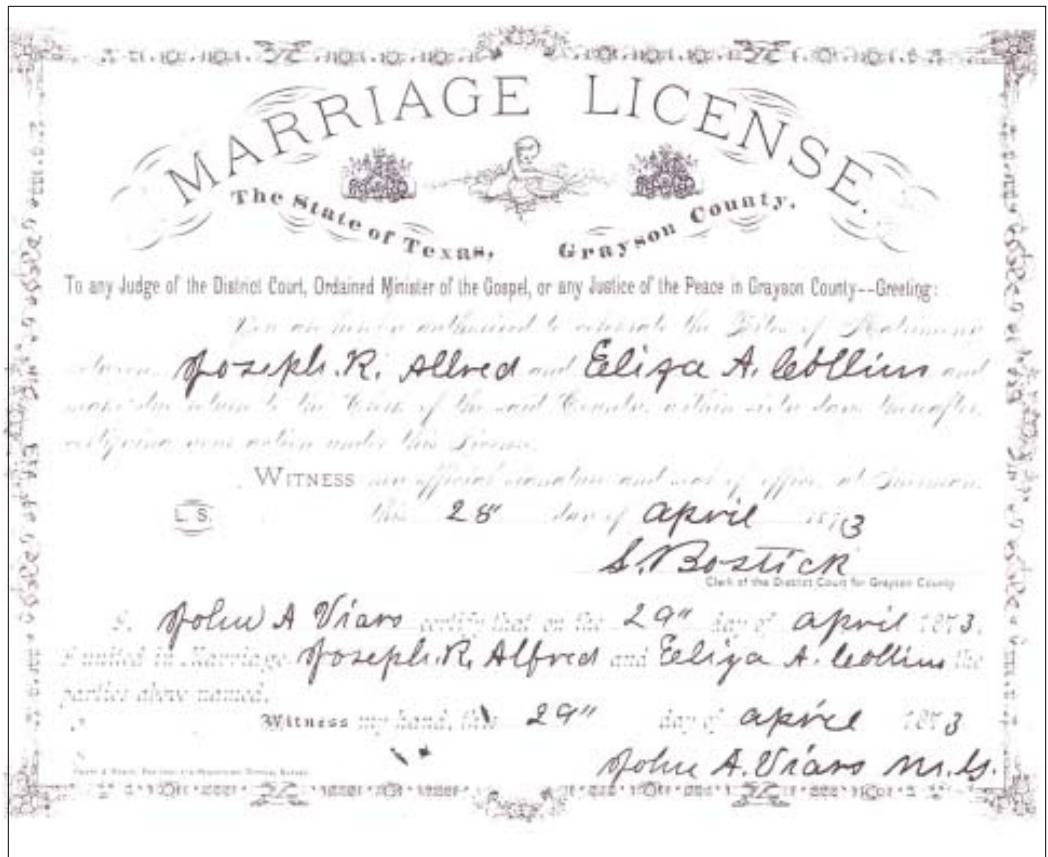 MARRIAGE LICENSE.
The State of Texas, Grayson County.
To any Judge of the District Court, Ordained Minister of the Gospel, or any Justice of the Peace in Grayson County--Greeting:
You are hereby authorized to celebrate the Rites of Matrimony
between Joseph. R. Allred and Eliza A. Collins and
make due return to the Clerk of the said County within sixty days thereafter,
certifying your action under this License.
WITNESS my official signature and seal of office at Sherman
L. S. this 28" day of april 1873
S. Bostick
Clerk of the District Court for Grayson County
I, John A Viars certify that on the 29" day of april 1873,
I united in Marriage Joseph. R. Alfred and Eeliza A. Collins the
parties above named.
Witness my hand, this 29" day of april 1873
John A. Viars M. G.